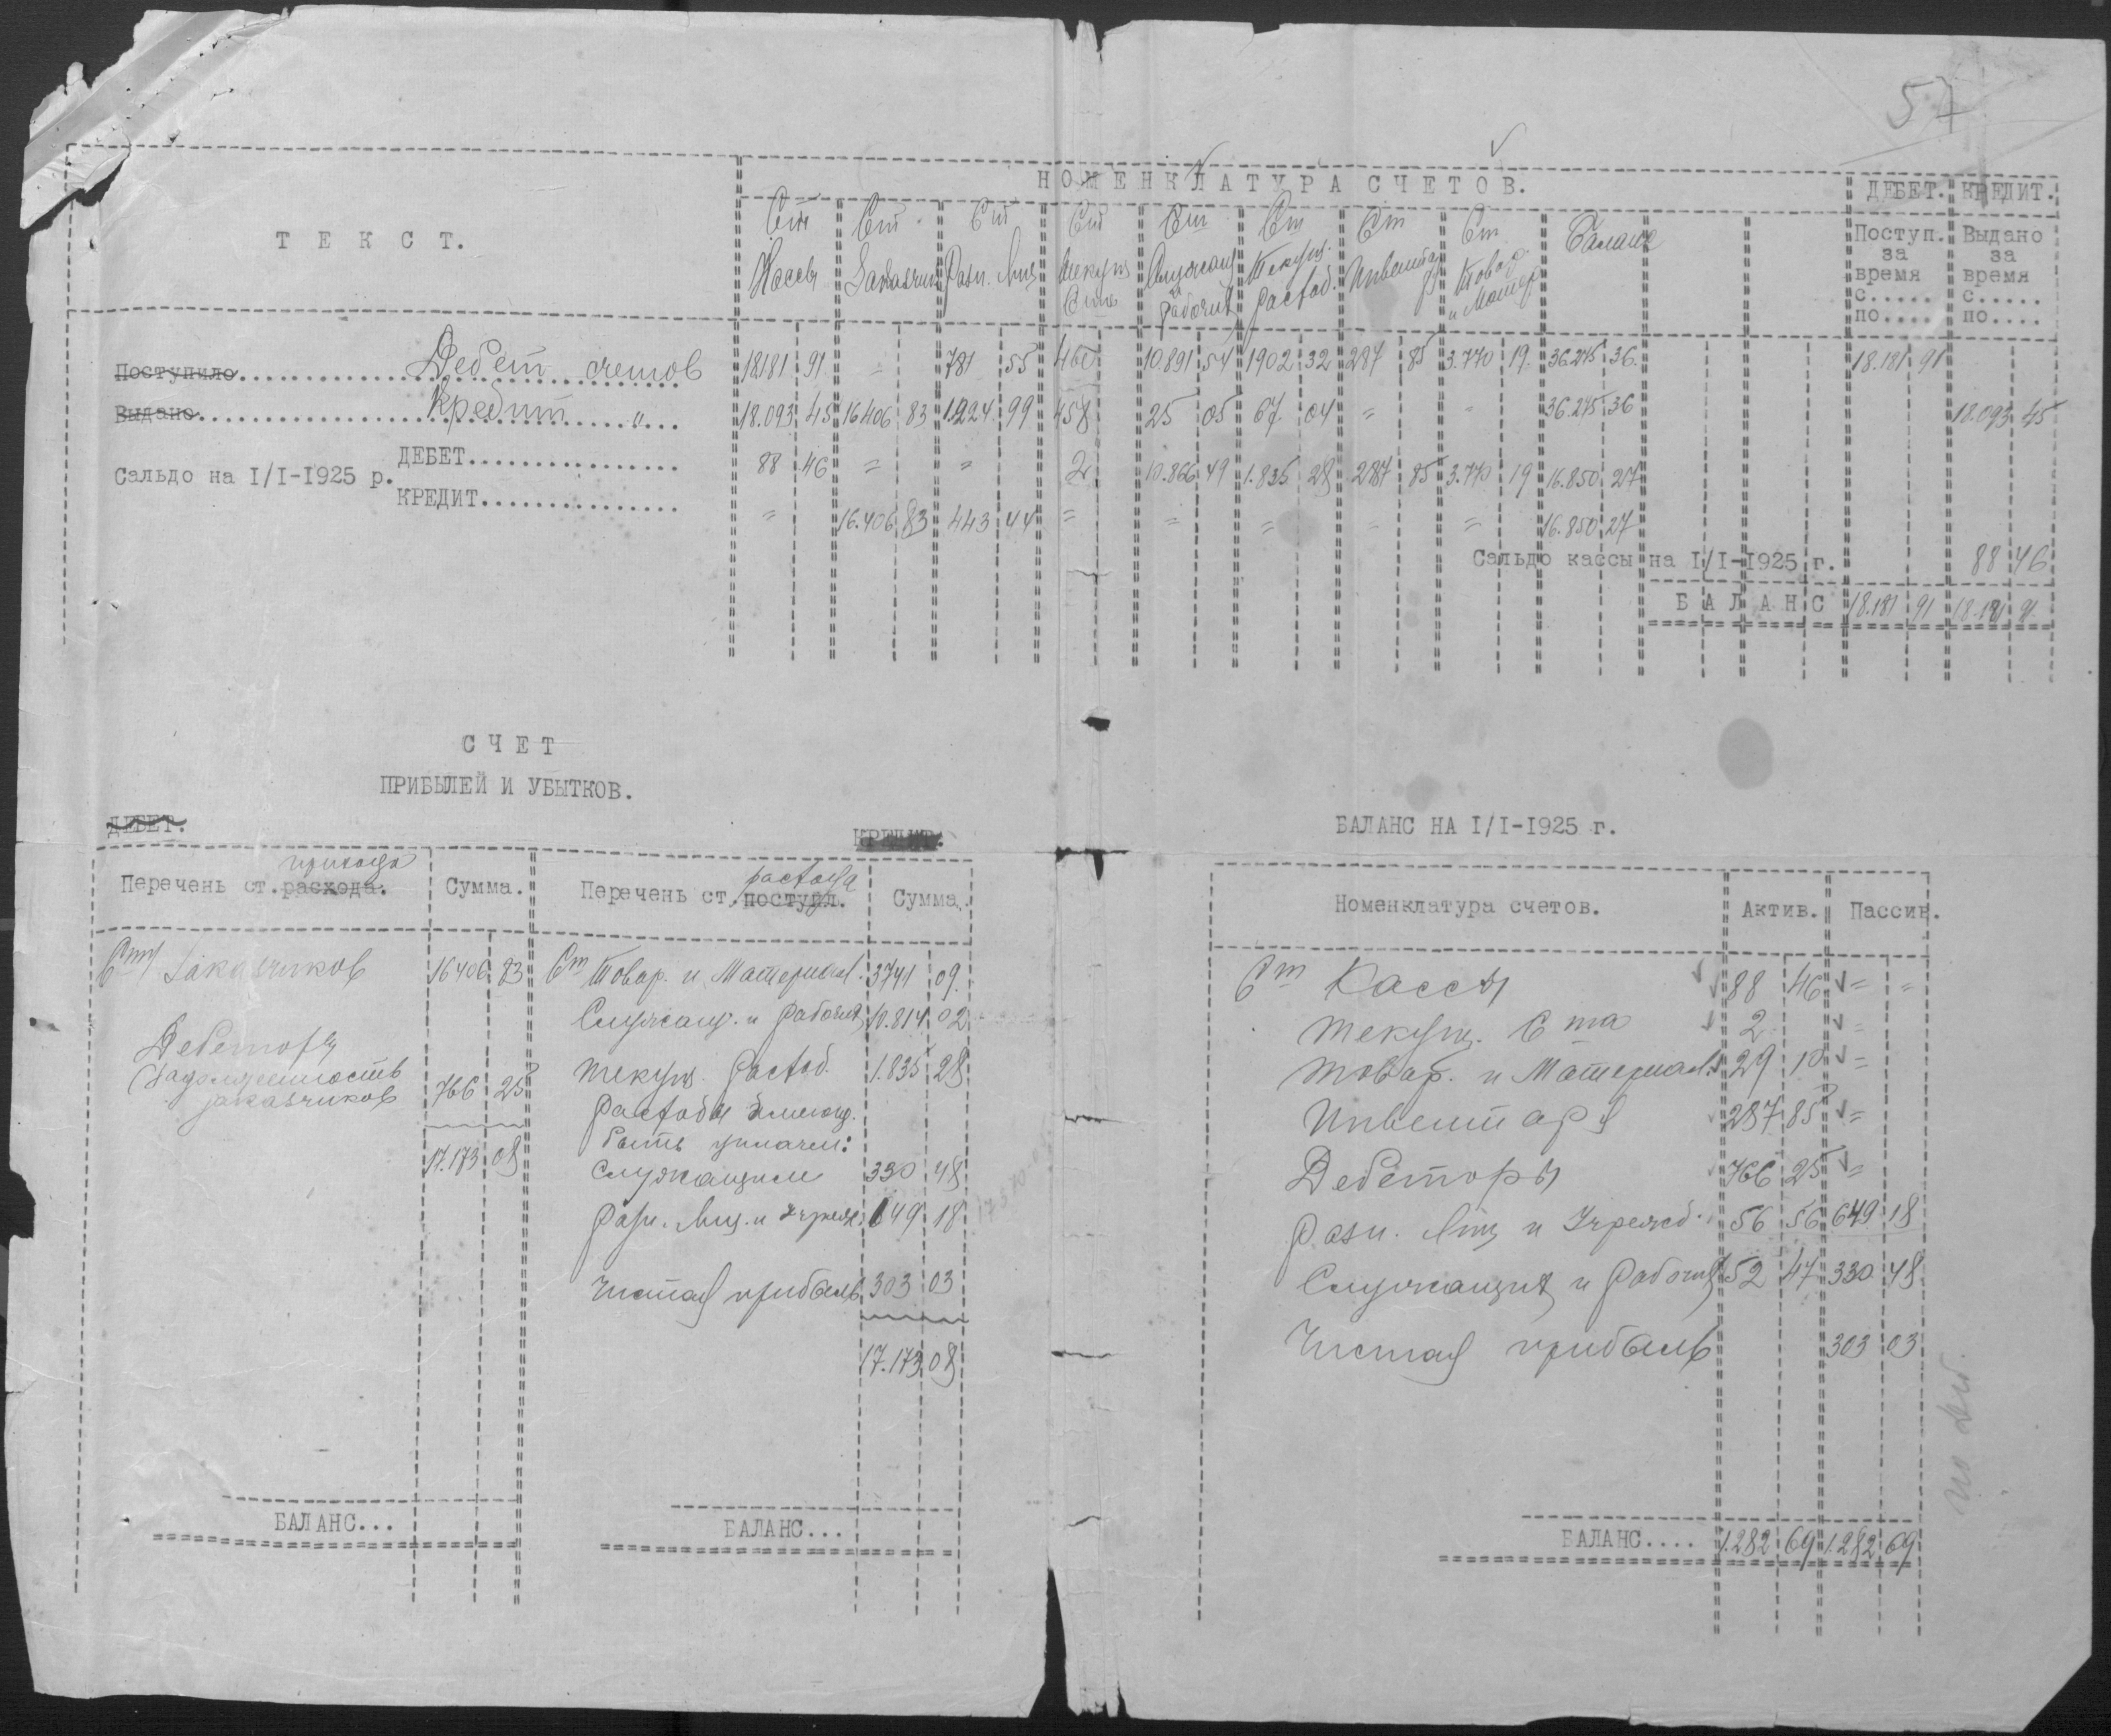 57
НОМЕНКЛАТУРА СЧЕТОВ. ДЕБЕТ. КРЕДИТ.
ТЕКСТ.
Ст Ст Ст Ст Ст Ст Ст Ст Баланс
Кассы Заказчик Разн. Лиц Текущ Счета Служащ и рабочих Текущ. расход. Инвентарь Товар. и Матер
Поступ. за время с..... по....
Выдано за время с..... по....
Поступило Дебет счетов 18181 91 = 781 55 460 10.891 54 1902 32 287 85 3.770 19 36.275 36 18.181 91
Выдано Кредит " 18.093 45 16406 83 1.224 99 458 25 05 67 04 = = 36.275 36 18.093 45
Сальдо на I/I-1925 р.
ДЕБЕТ................ 88 46 = = 2 10.866 49 1.835 28 287 85 3.770 19 16.850 27
КРЕДИТ............... = 16.406 83 443 44 = = = = = 16.850 27
Сальдо кассы на I/I-1925 г. 88 46
БАЛАНС 18.181 91 18.181 91
СЧЕТ
ПРИБЫЛЕЙ И УБЫТКОВ.
ДЕБЕТ. КРЕДИТ.
Перечень ст. расхода. прихода Сумма. Перечень ст. поступл. расхода Сумма.
Ст Заказчиков 16406 83 Ст Товар. и Материал. 3741 09
Служащ. и рабочих 10.814 02
Дебеторы
(Задолженность заказчиков 766 25 Текущ. Расход. 1.835 28
17.173 08 Расходы
быть уплачен:
Служащим 330 48
Разн. Лиц. и Учрежд. 649 18
Чистая прибыль 303 03
17.173 08
БАЛАНС... БАЛАНС...
БАЛАНС НА I/I-1925 г.
Номенклатура счетов. Актив. Пассив.
Ст Кассы 88 46 = =
Текущ. Счета 2 =
Товар. и Материал. 29 10 =
Инвентаря 287 85 =
Дебеторы 766 25 =
Разн. Лиц и Учрежд. 56 56 649 18
Служащих и Рабочих 52 47 330 48
Чистая прибыль 303 03
БАЛАНС.... 1.282 69 1.282 69